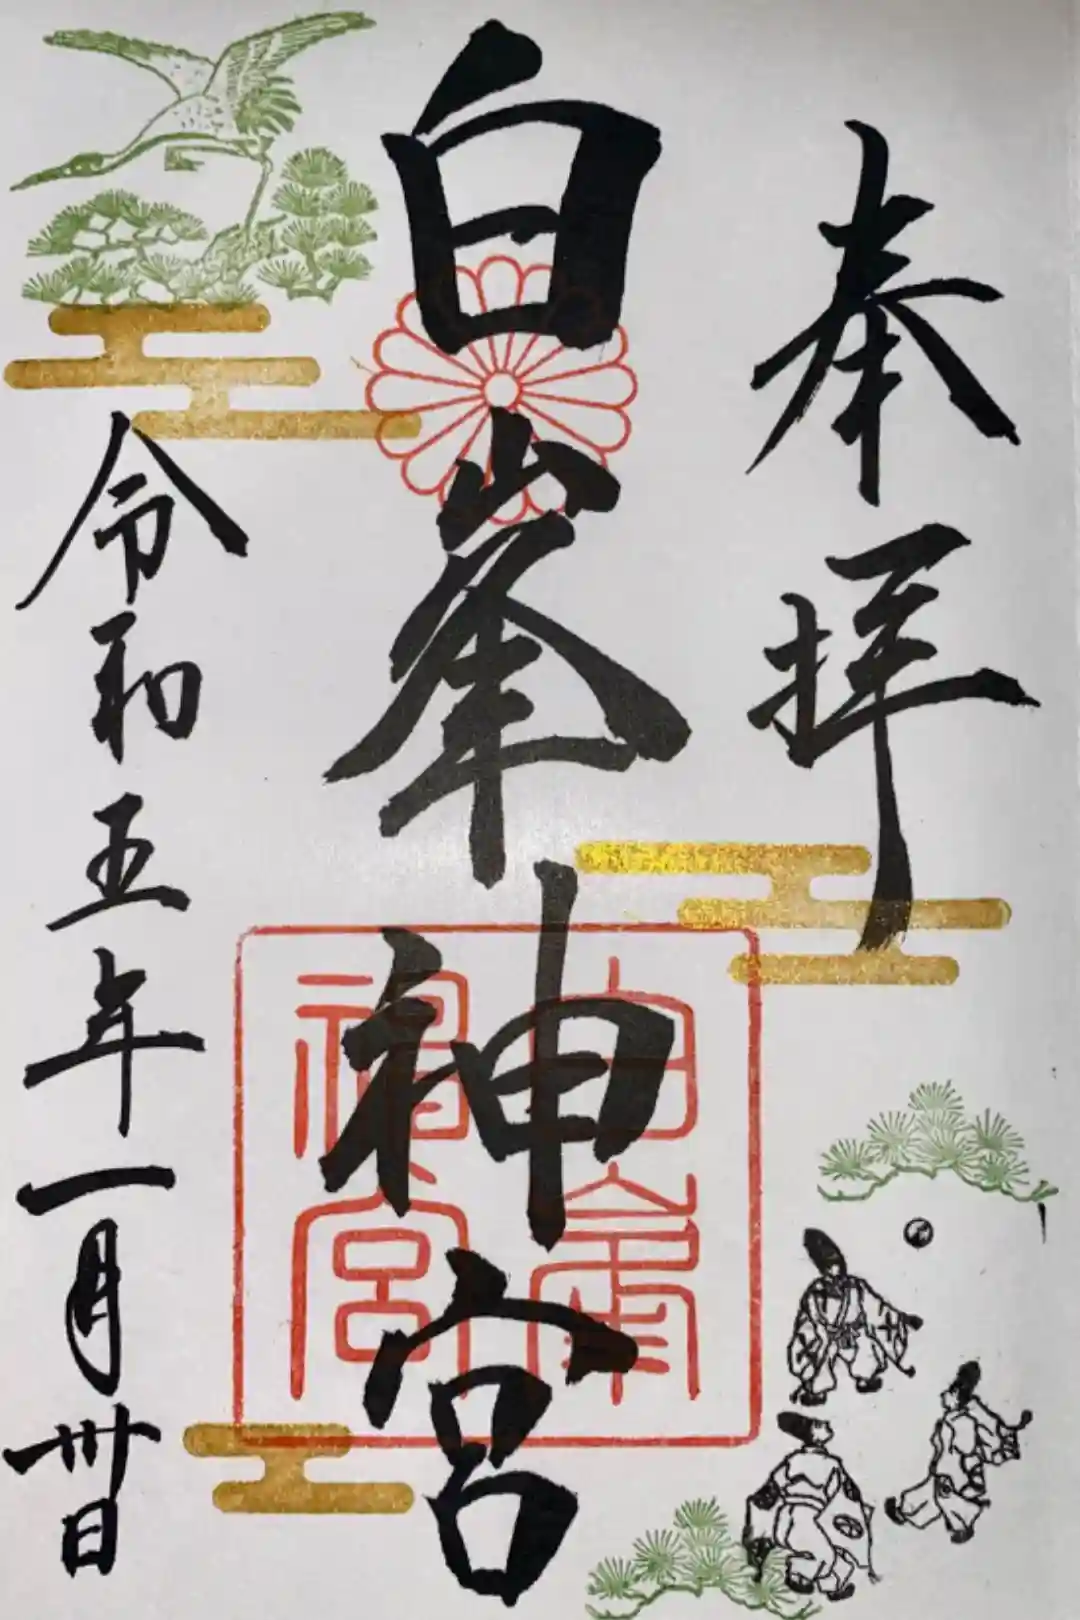 奉拝
白峯神宮
令和五年一月卅日
白峯
神宮